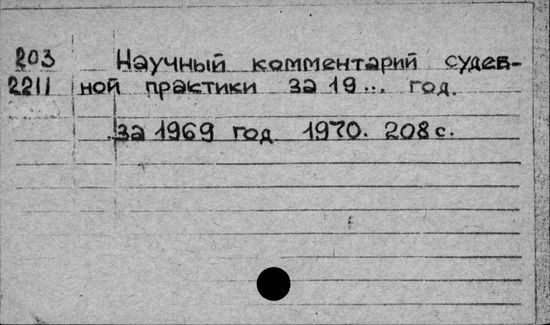 203 Научный комментарий судеб-
2211 ной практики за 19... год.
за 1969 год 1970. 208 с.